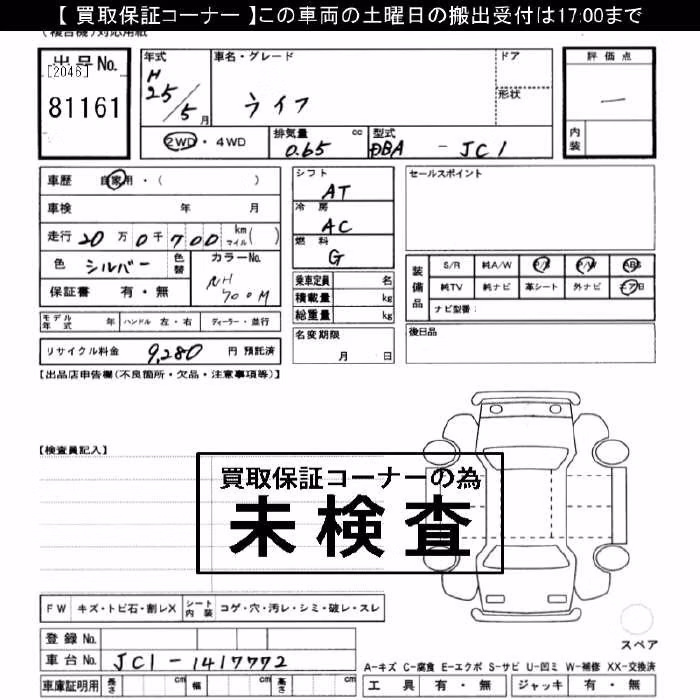 【 買取保証コーナー 】この車両の土曜日の搬出受付は17:00まで
(複合機)対応用紙
出品No.
[2046]
81161
年式
H
25/5月
車名・グレード
ライフ
ドア
形状
評価点
—
内装
2WD・4WD
排気量 cc
0.65
型式
DBA - JC1
車歴 自家用・( )
車検 年 月
走行 20万0千700 km マイル( )
色 シルバー 色替
カラーNo.
NH
700M
保証書 有・無
シフト
AT
冷房
AC
燃料
G
乗車定員 名
積載量 kg
総重量 kg
セールスポイント
装備品
S/R 純A/W P/S P/W ABS
純TV 純ナビ 革シート 外ナビ エアB
ナビ型番:
モデル年式 年 ハンドル 左・右 ディーラー・並行
リサイクル料金 9,280 円 預託済
名変期限
月 日
後日品
【出品店申告欄(不良箇所・欠品・注意事項等)】
【検査員記入】
買取保証コーナーの為
未検査
FW キズ・トビ石・割レX シート内装 コゲ・穴・汚レ・シミ・破レ・スレ
登録No.
車台No. JC1-1417772
車庫証明用 長さ cm 幅 cm 高さ cm
スペア
A-キズ C-腐食 E-エクボ S-サビ U-凹ミ W-補修 XX-交換済
工具 有・無 ジャッキ 有・無